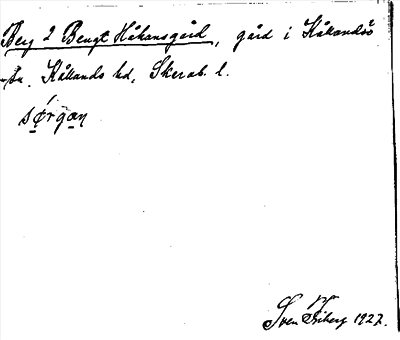 Berg 2 Bengt Håkansgård, gård i Kållandsö
sn. Kållands hd, Skarab. l.
sǿrgan
Sven Friberg 1927.